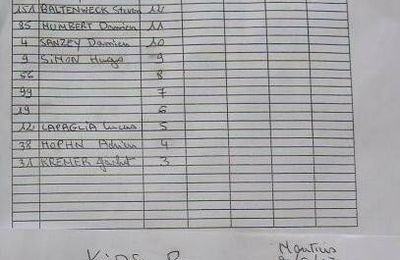 151 BALTENWECK Steven 12
85 HUMBERT Damien 11
4 SANZEY Damien 10
9 SiMON Hugo 9
56 8
99 7
19 6
12 LAPAGLIA Lucas 5
38 HOPHN Adrien 4
31 KREMER 3
KiDS